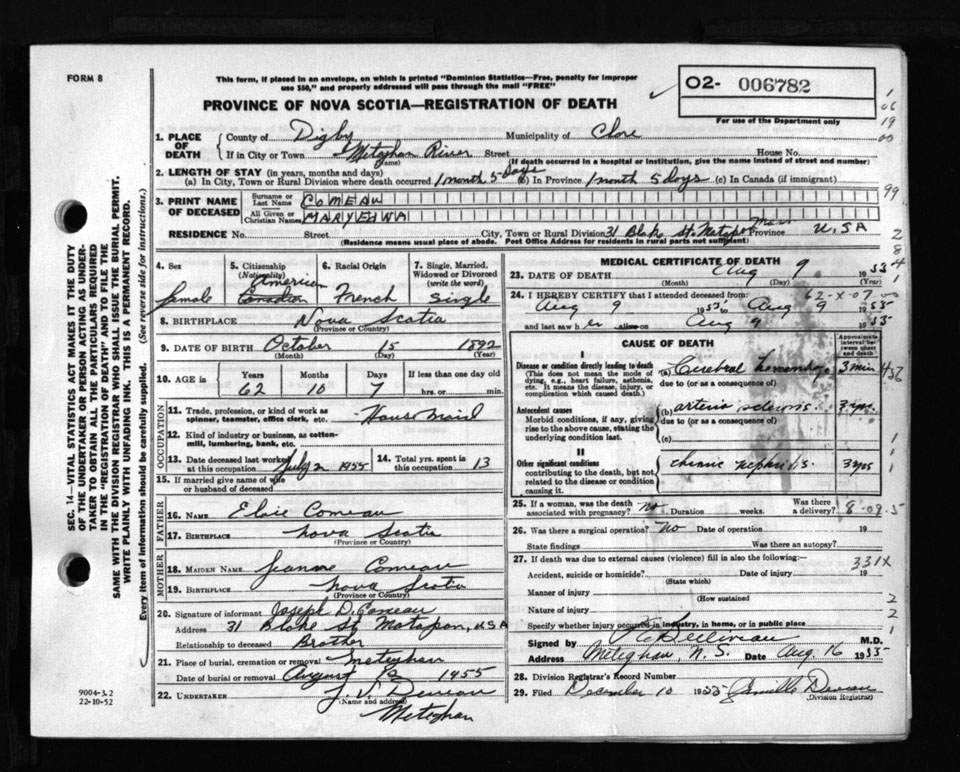 FORM 8
This form, if placed in an envelope, on which is printed "Dominion Statistics—Free, penalty for improper
use $50," and properly addressed will pass through the mail "FREE"
PROVINCE OF NOVA SCOTIA—REGISTRATION OF DEATH
O2- 006782
For use of the Department only
1. PLACE OF DEATH
County of Digby Municipality of Clare
If in City or Town Meteghan River Street House No.
(Name) (If death occurred in a hospital or institution, give the name instead of street and number)
2. LENGTH OF STAY (in years, months and days)
(a) In City, Town or Rural Division where death occurred 1 month 5 days (b) In Province 1 month 5 days (c) In Canada (if immigrant)
3. PRINT NAME OF DECEASED
Surname or Last Name COMEAU
All Given or Christian Names MARY EDNA
RESIDENCE No. Street City, Town or Rural Division 31 Blake St. Matapan Mass Province U.SA
(Residence means usual place of abode. Post Office Address for residents in rural parts not sufficient)
4. Sex
female
5. Citizenship
(Nationality)
American
Canadian
6. Racial Origin
French
7. Single, Married, Widowed or Divorced
(write the word)
Single
8. BIRTHPLACE Nova Scotia
(Province or Country)
9. DATE OF BIRTH October 15 1892
(Month) (Day) (Year)
10. AGE in
Years Months Days If less than one day old
62 10 7 hrs. or min.
OCCUPATION
11. Trade, profession, or kind of work as spinner, teamster, office clerk, etc. House Maid
12. Kind of industry or business, as cotton-mill, lumbering, bank, etc.
13. Date deceased last worked at this occupation July 2 1955
14. Total yrs. spent in this occupation 13
15. If married give name of wife or husband of deceased
FATHER
16. NAME Elsie Comeau
17. BIRTHPLACE Nova Scotia
(Province or Country)
MOTHER
18. MAIDEN NAME Jeanne Comeau
19. BIRTHPLACE Nova Scotia
(Province or Country)
20. Signature of informant Joseph D. Comeau
Address 31 Blake St Matapan, USA
Relationship to deceased Brother
21. Place of burial, cremation or removal Meteghan
Date of burial or removal August 1955
22. UNDERTAKER
(Name and address)
Meteghan
MEDICAL CERTIFICATE OF DEATH
23. DATE OF DEATH Aug 9 1955
(Month) (Day) (Year)
62-X-07.00
24. I HEREBY CERTIFY that I attended deceased from:
Aug 9 1955 to Aug 9 1955
and last saw her alive on Aug 9 1955
CAUSE OF DEATH
Approximate interval between onset and death
I
Disease or condition directly leading to death
(This does not mean the mode of dying, e.g., heart failure, asthenia, etc. It means the disease, injury, or complication which caused death.)
(a) Cerebral hemorrhage 3 min
due to (or as a consequence of)
Antecedent causes
Morbid conditions, if any, giving rise to the above cause, stating the underlying condition last.
(b) arterio sclerosis 3 yrs.
due to (or as a consequence of)
(c)
II
Other significant conditions
contributing to the death, but not related to the disease or condition causing it.
chronic nephritis. 3 yrs
25. If a woman, was the death associated with pregnancy? no Duration weeks. Was there a delivery?
8-09.5
26. Was there a surgical operation? No Date of operation 19
State findings Was there an autopsy?
27. If death was due to external causes (violence) fill in also the following:—
331X
Accident, suicide or homicide? Date of injury 19
(State which)
Manner of injury
(How sustained
Nature of injury
Specify whether injury occurred in industry, in home, or in public place
Signed by M.D.
Address Meteghan, N.S. Date Aug. 16 1955
28. Division Registrar's Record No.
29. Filed December 10 1955
(Division Registrar)
SEC. 14—VITAL STATISTICS ACT MAKES IT THE DUTY
OF THE UNDERTAKER OR PERSON ACTING AS UNDER-
TAKER TO OBTAIN ALL THE PARTICULARS REQUIRED
IN THE "REGISTRATION OF DEATH" AND TO FILE THE
SAME WITH THE DIVISION REGISTRAR WHO SHALL ISSUE THE BURIAL PERMIT.
WRITE PLAINLY WITH UNFADING INK. THIS IS A PERMANENT RECORD.
Every item of information should be carefully supplied. (See reverse side for instructions.)
9004-3.2
22-10-52